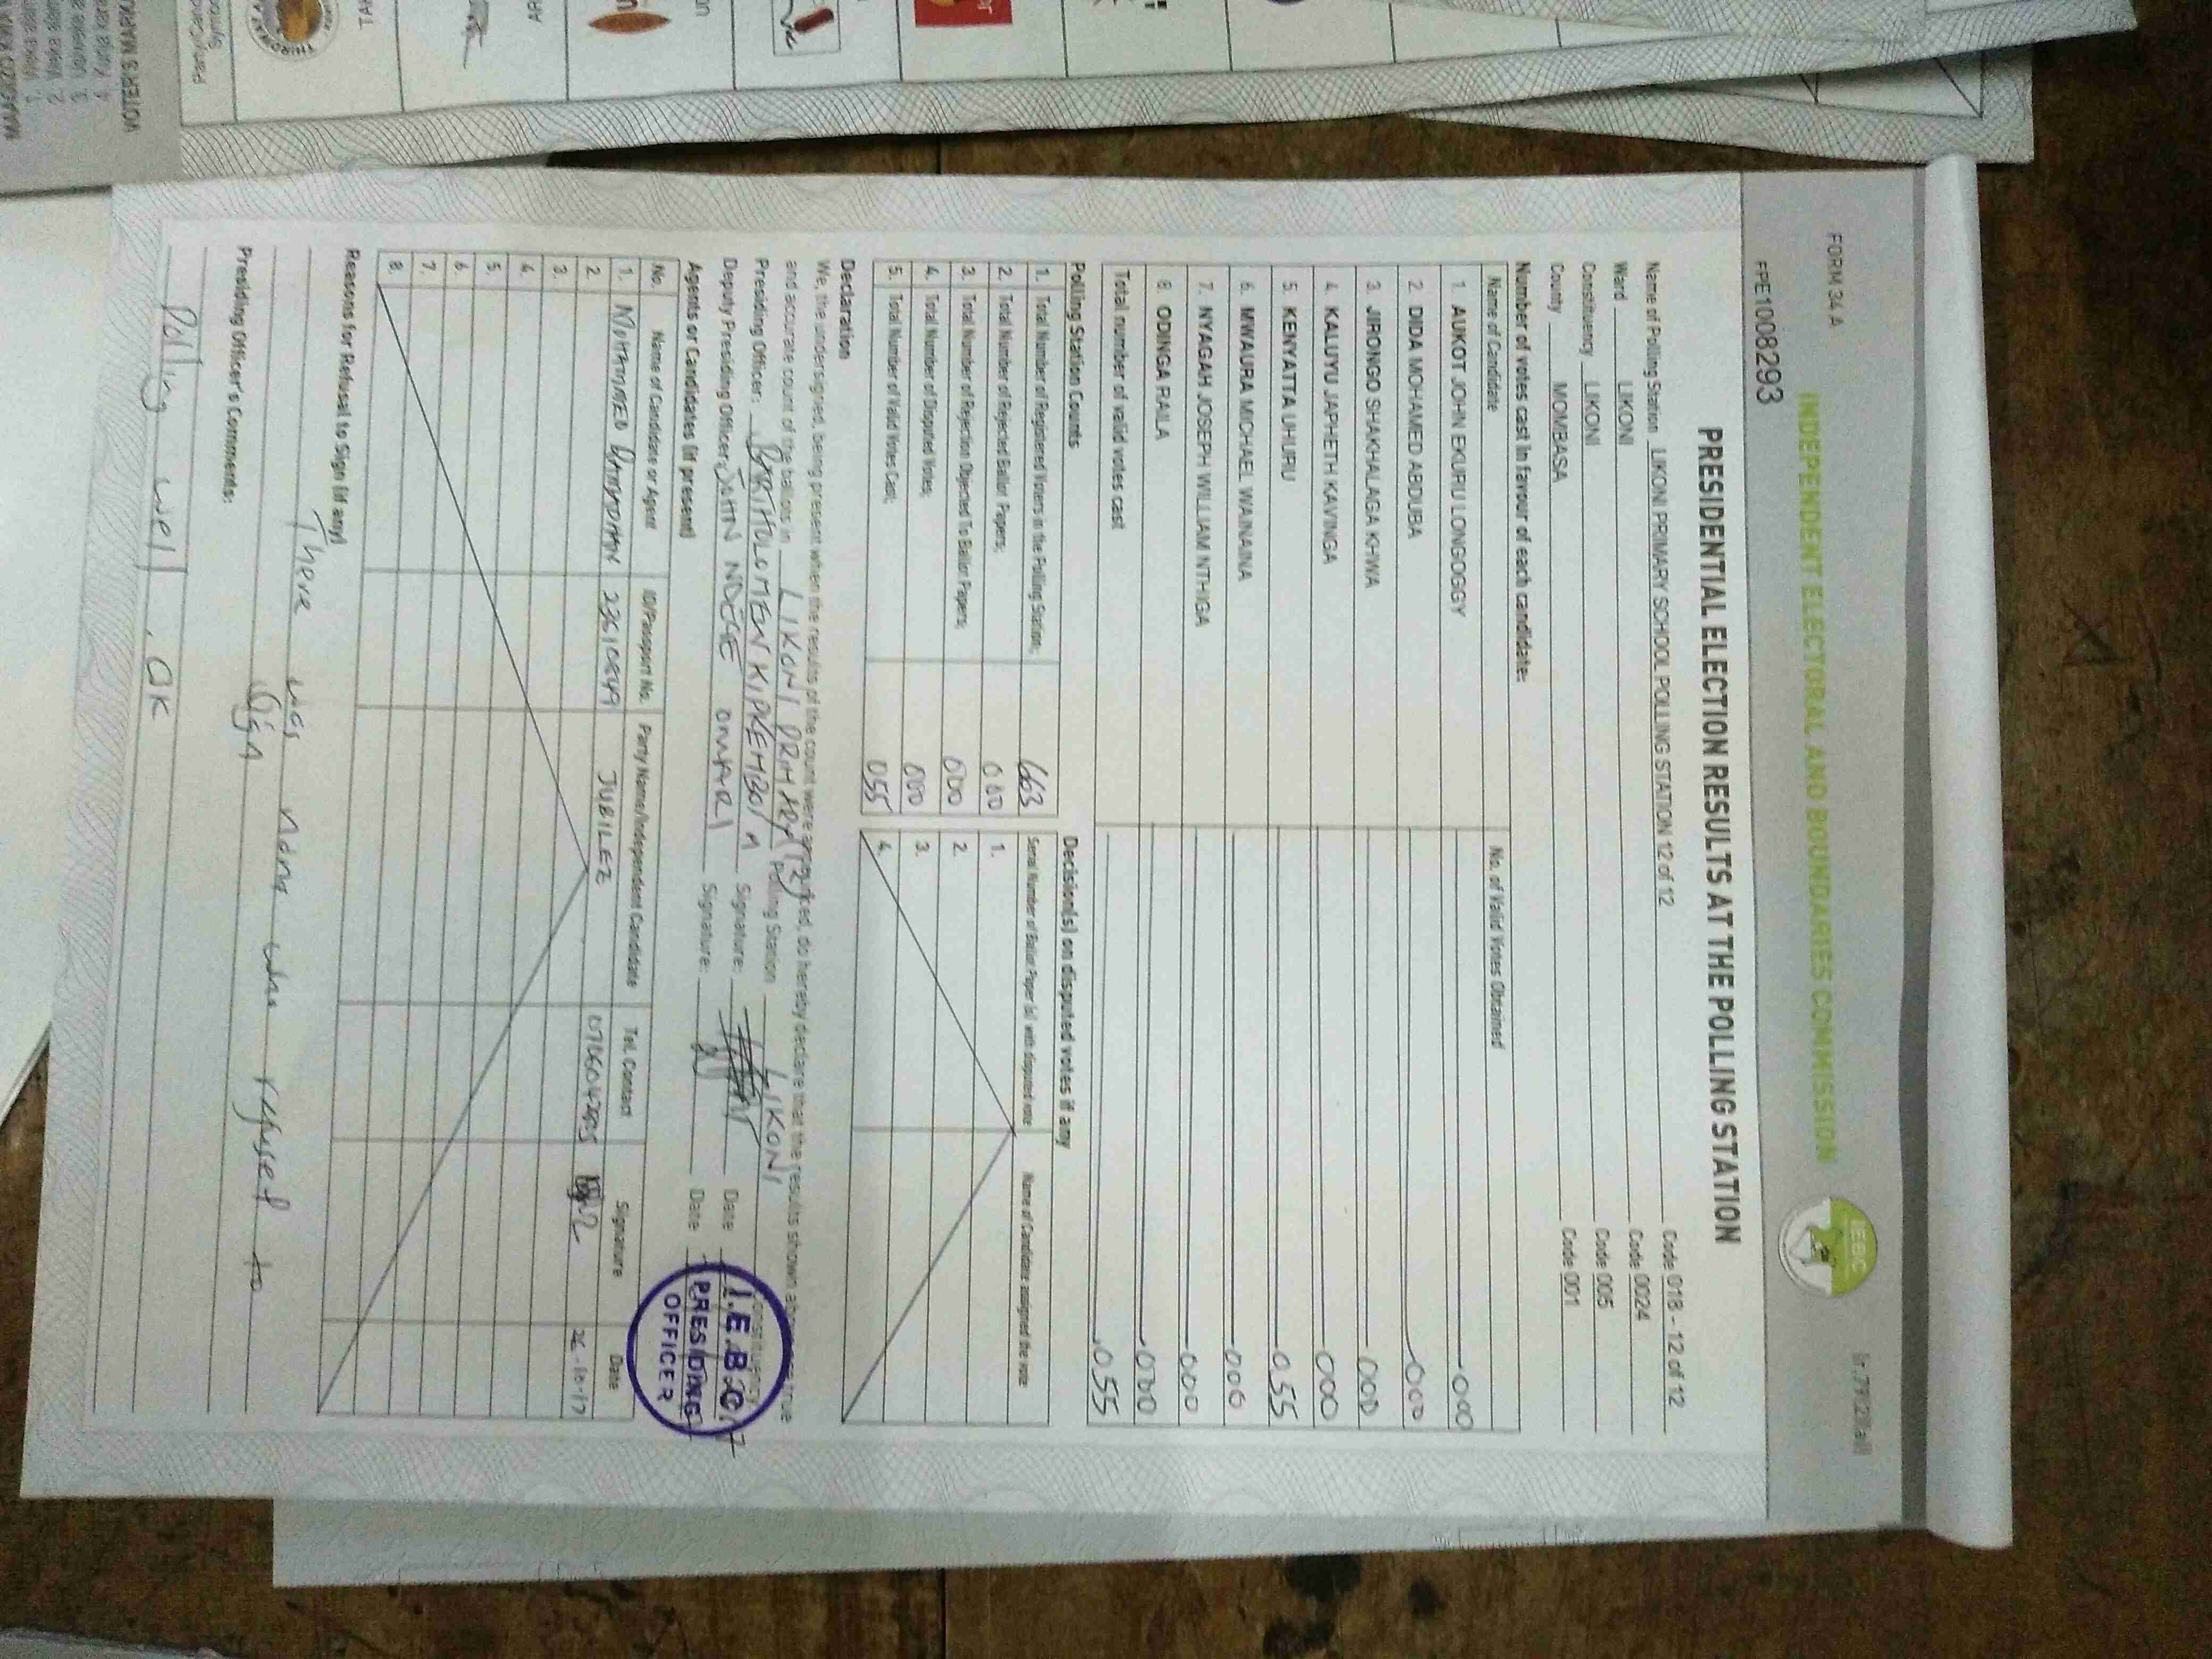 FORM 34 A
INDEPENDENT ELECTORAL AND BOUNDARIES COMMISSION
IEBC
PPE10082293
PRESIDENTIAL ELECTION RESULTS AT THE POLLING STATION
Name of Polling Station LIKONI PRIMARY SCHOOL POLLING STATION 12 of 12 Code 018 - 12 of 12
Ward LIKONI Code 0024
Constituency LIKONI Code 005
County MOMBASA Code 001
Number of votes cast in favour of each candidate:
Name of Candidate No. of Valid Votes Obtained
1. AUKOT JOHN EKURU LONGOGGY 000
2. DIDA MOHAMED ABDUBA 000
3. JIRONGO SHAKHALAGA KHWA 000
4. KALUYU JAPHETH KAVINGA 000
5. KENYATTA UHURU 055
6. MWAURA MICHAEL WAINAINA 000
7. NYAGAH JOSEPH WILLIAM NTHIGA 000
8. ODINGA RAILA 000
Total number of valid votes cast 055
Polling Station Counts
1. Total Number of Registered Voters in the Polling Station; 663
2. Total Number of Rejected Ballot Papers; 000
3. Total Number of Rejection Objected To Ballot Papers; 000
4. Total Number of Disputed Votes; 000
5. Total Number of Valid Votes Cast; 055
Decision(s) on disputed votes if any
Serial Number of Ballot Paper (s) with disputed vote Name of Candidate assigned the vote
1.
2.
3.
4.
Declaration
We, the undersigned, being present when the results of the count were announced, do hereby declare that the results shown above are true
and accurate count of the ballots in LIKONI PRIMARY (12) Polling Station LIKONI Constituency
Presiding Officer: Signature: Date
Deputy Presiding Officer: JOHN NDEGE OMARI Signature: Date
I.E.B.C.
PRESIDING
OFFICER
Agents or Candidates (if present)
No. Name of Candidate or Agent ID/Passport No. Party Name/Independent Candidate Tel. Contact Signature Date
1. MOHAMMED JUBILEE 26-10-17
2.
3.
4.
5.
6.
7.
8.
Reasons for Refusal to Sign (if any)
There was none who refused to
sign
Presiding Officer's Comments:
Polling well, OK
VOTER'S MARK